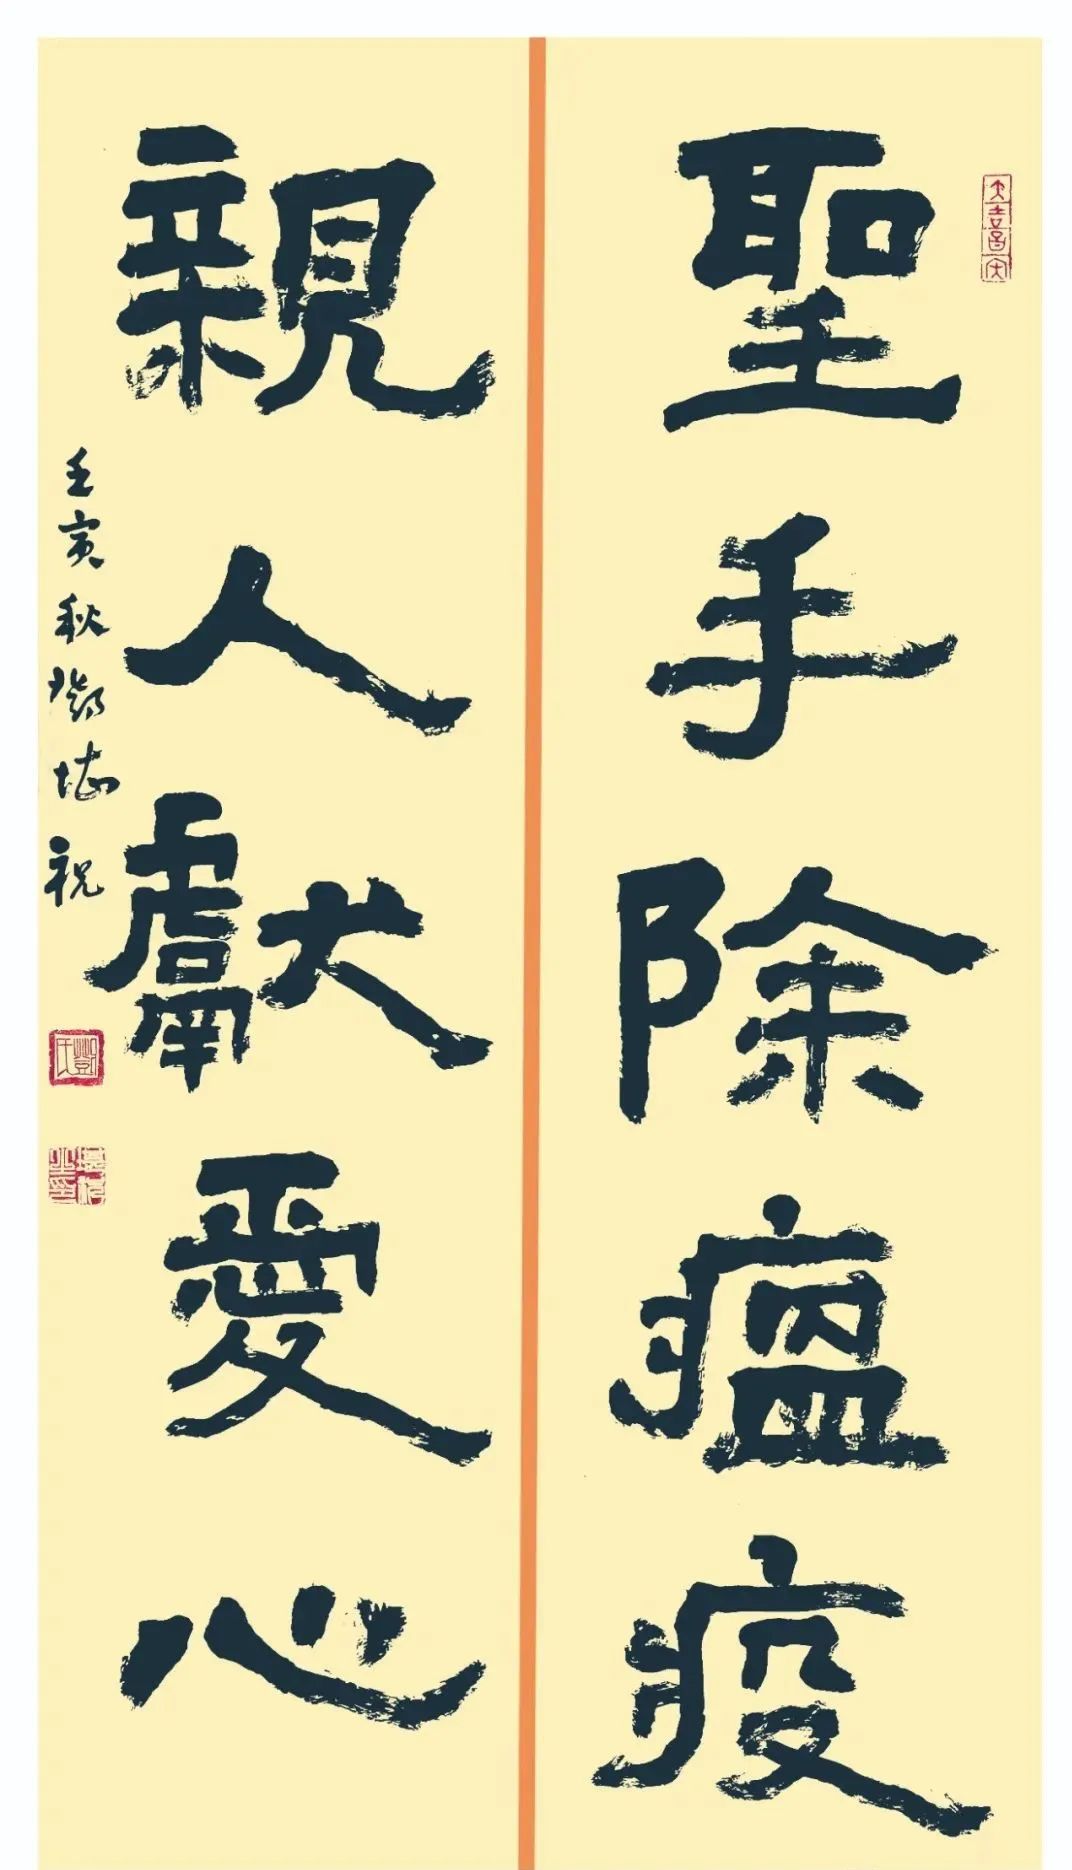 聖手除瘟疫
親人獻愛心
壬寅秋鄧
祝